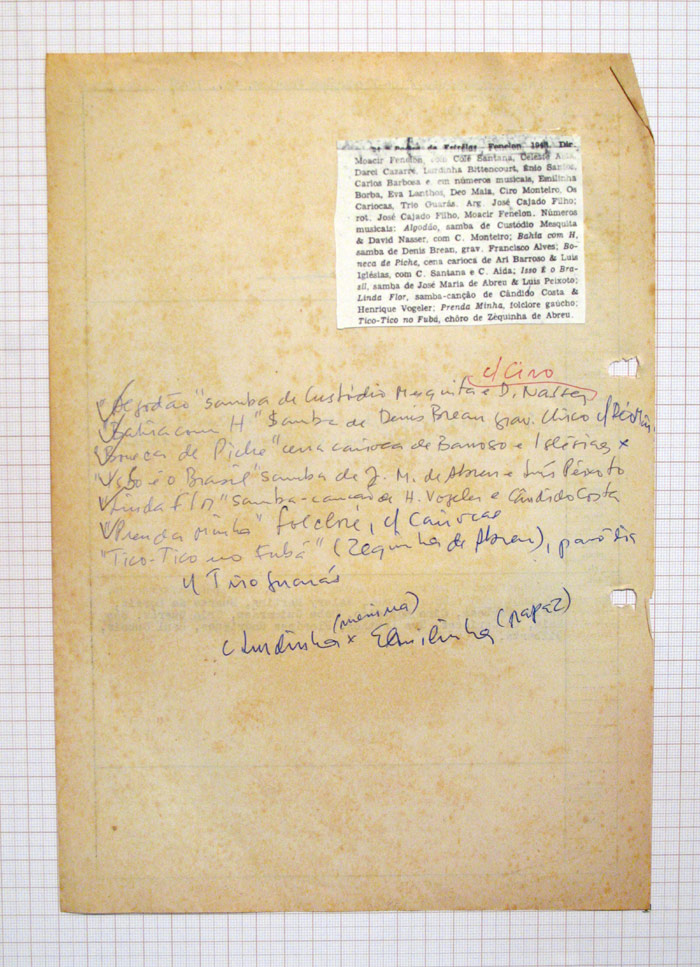 Fenelon 1948. Dir.
Moacir Fenelon, Colé Santana, Celeste Aida,
Darci Cazarré, Lurdinha Bittencourt, Ênio Santos,
Carlos Barbosa e em números musicais, Emilinha
Borba, Eva Lanthos, Deo Maia, Ciro Monteiro, Os
Cariocas, Trio Guarás. Arg. José Cajado Filho;
rot. José Cajado Filho, Moacir Fenelon. Números
musicais: Algodão, samba de Custódio Mesquita
& David Nasser, com C. Monteiro; Bahia com H,
samba de Denis Brean, grav. Francisco Alves; Bo-
neca de Piche, cena carioca de Ari Barroso & Luis
Iglésias, com C. Santana e C. Aida; Isso É o Bra-
sil, samba de José Maria de Abreu & Luis Peixoto;
Linda Flor, samba-canção de Cândido Costa &
Henrique Vogeler; Prenda Minha, folclore gaúcho;
Tico-Tico no Fubá, chôro de Zéquinha de Abreu.
c/ Ciro
"Algodão" samba de Custódio Mesquita e D. Nasser
"Bahia com H" samba de Denis Brean grav. Chico c/
"Boneca de Piche" cena carioca de Barroso e Iglésias x
"Isso é o Brasil" samba de J. M. de Abreu e Luís Peixoto
"Linda Flor" samba-canção de H. Vogeler e Cândido Costa
"Prenda Minha" folclore, c/ Cariocas
"Tico-Tico no Fubá" (Zequinha de Abreu), paródia
c/ Trio Guarás
(menina) (rapaz)
c/ Lurdinha x Emilinha